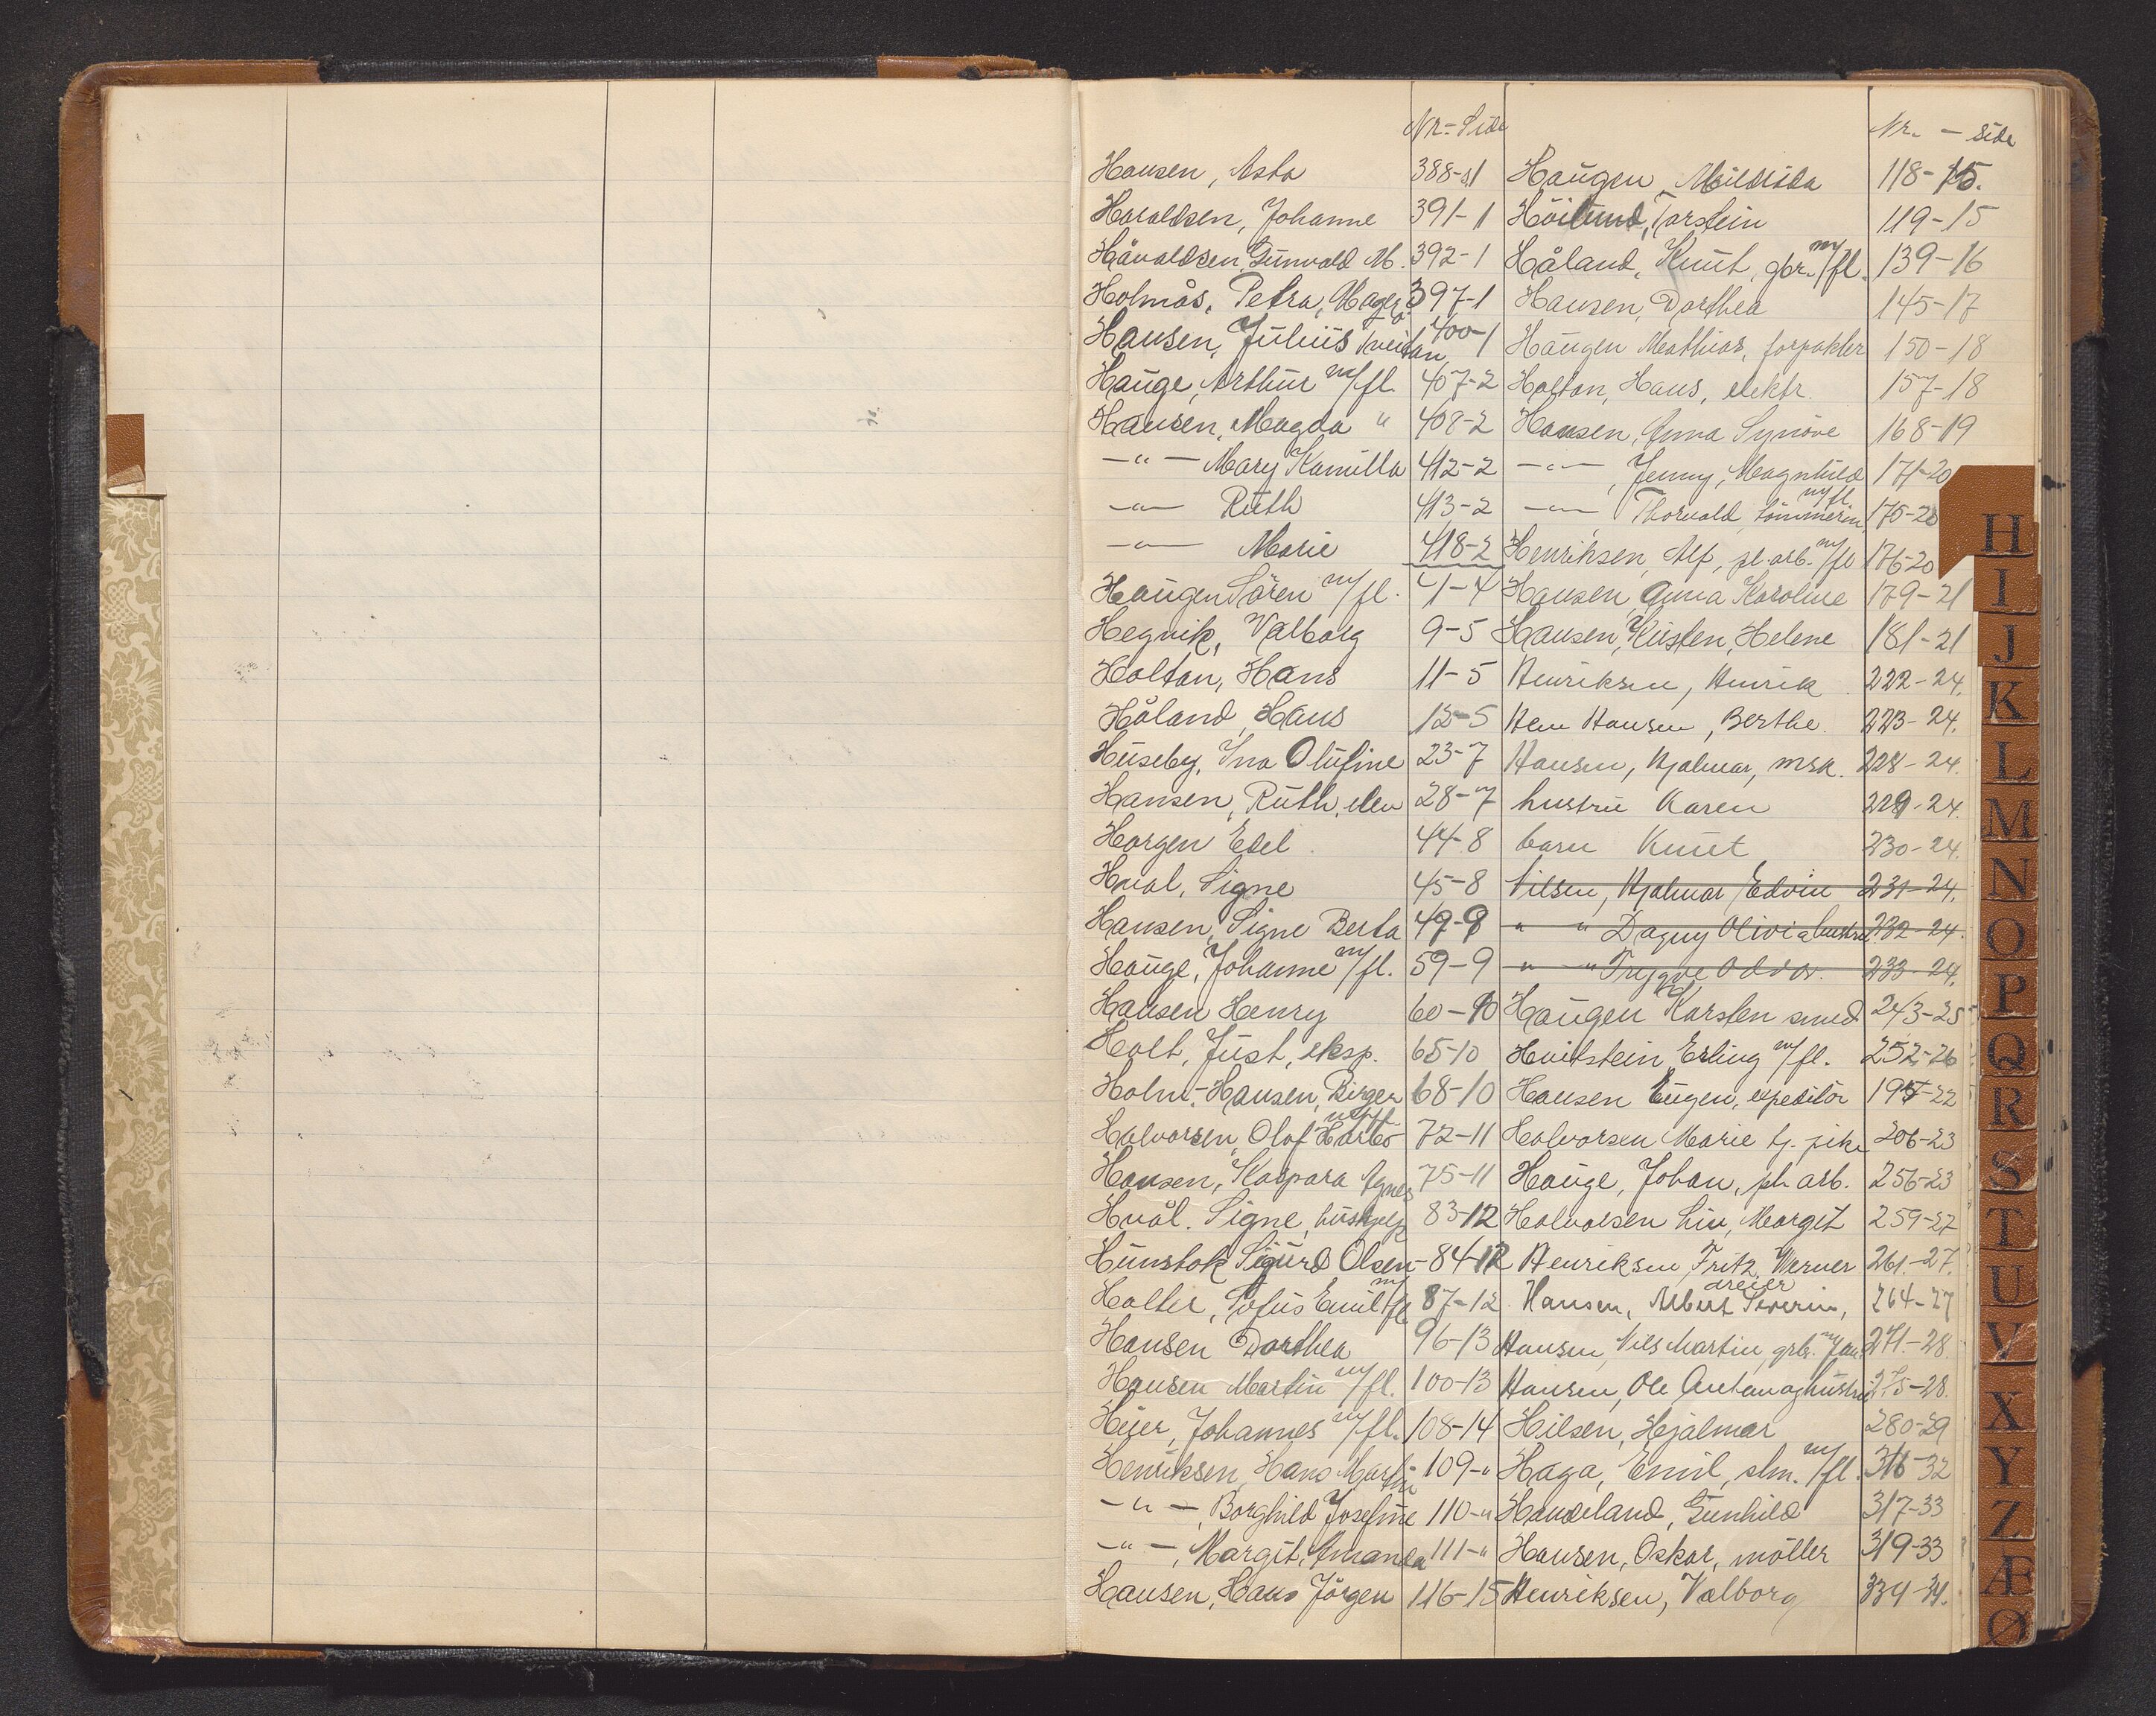 Nr - Side
Hansen, Asta 388-1
Haraldsen, Johanne 391-1
Håvaldsen, Gunvald M. 392-1
Holmås, Petra, 397-1
Hansen, Julius Tveitan 400-1
Hauge, Arthur m/fl. 407-2
Hansen, Magda " 408-2
-"- Mary Kamilla 412-2
-"- Ruth 413-2
-"- Marie 418-2
Haugen Sören m/fl. 4-4
Hegvik, Valborg 9-5
Holtan, Hans 11-5
Håland, Hans 12-5
Huseby, Ina Olufine 23-7
Hansen, Ruth, elev 28-7
Horgen Edel 44-8
Hval, Signe 45-8
Hansen, Signe Berta 49-8
Hauge, Johanne m/fl. 59-9
Hansen Henry 60-10
Holt, Just, eksp. 65-10
Holm-Hansen, Birger 68-10
Halvorsen, Olaf 72-11
Hansen, Kaspara Agnes 75-11
Hvål. Signe, hushjelp 83-12
Hunstok Sigurd Olsen - 84-12
Holter, Sofus Emil m/fl 87-12
Hansen Dorthea 96-13
Hansen Martin m/fl. 100-13
Johannes m/fl. 108-14
Henriksen, Hans Martin 109-"
-"-, Borghild Josefine 110-"
-"-, Margit, Amanda 111-"
Hansen, Hans Jörgen 116-15
Nr. - side
Haugen, 118-15.
Höilund, Torstein 119-15
Håland, Knut, gbr. m/fl. 139-16
Hansen, Dorthea 145-17
Haugen Mathias, forpakter 150-18
Holtan, Hans, elektr. 157-18
Hansen, Anna Synöve 168-19
-"-, Jenny, Magnhild 171-20
-"- Thorvald, m/fl 175-20
Henriksen, Alf, pl. arb. m/fl 176-20
Hansen, Anna Karoline 179-21
Hansen, Kirsten, Helene 181-21
Henriksen, Henrik 222-24.
Hansen, Berthe. 223-24.
Hansen, Hjalmar, msk. 228-24.
hustru Karen 229-24.
barn Knut 230-24.
Nilsen, Hjalmar Edvin 231-24.
" " Dagny Olivia hustru 232-24.
" " Trygve Oddvar. 233-24.
Haugen Karsten smed 243-25
Hvitstein, Erling m/fl. 252-26
Hansen Eugen, expeditör 197-22
Halvorsen Marie tj. pike 206-23
Hauge, Johan, pl. arb. 256-23
Halvorsen Liv, Margit 259-27
Henriksen Fritz Werner 261-27.
Hansen, Albert Severin, dreier 264-27
Hansen, Nils Martin, grb. 271-28.
Hansen, Ole Anton og hustru 275-28.
Hilsen, Hjalmar 280-29
Haga, Emil, slm. m/fl. 316-32
Haudeland, Gunhild 317-33
Hansen, Oskar, möller 319-33
Henriksen, Valborg 334-34.
H
I
J
K
L
M
N
O
P
Q
R
S
T
U
V
X
Y
Z
Æ
Ø